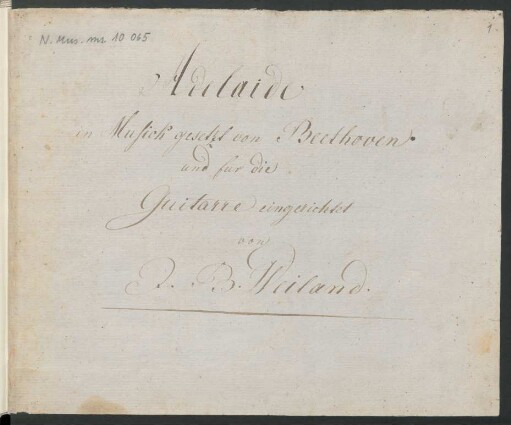 N. Mus. ms. 10 065
1.
Adelaide
in Musick gesetzt von Beethoven
und für die
Guitarre eingerichtet
von
J. B. Weiland.